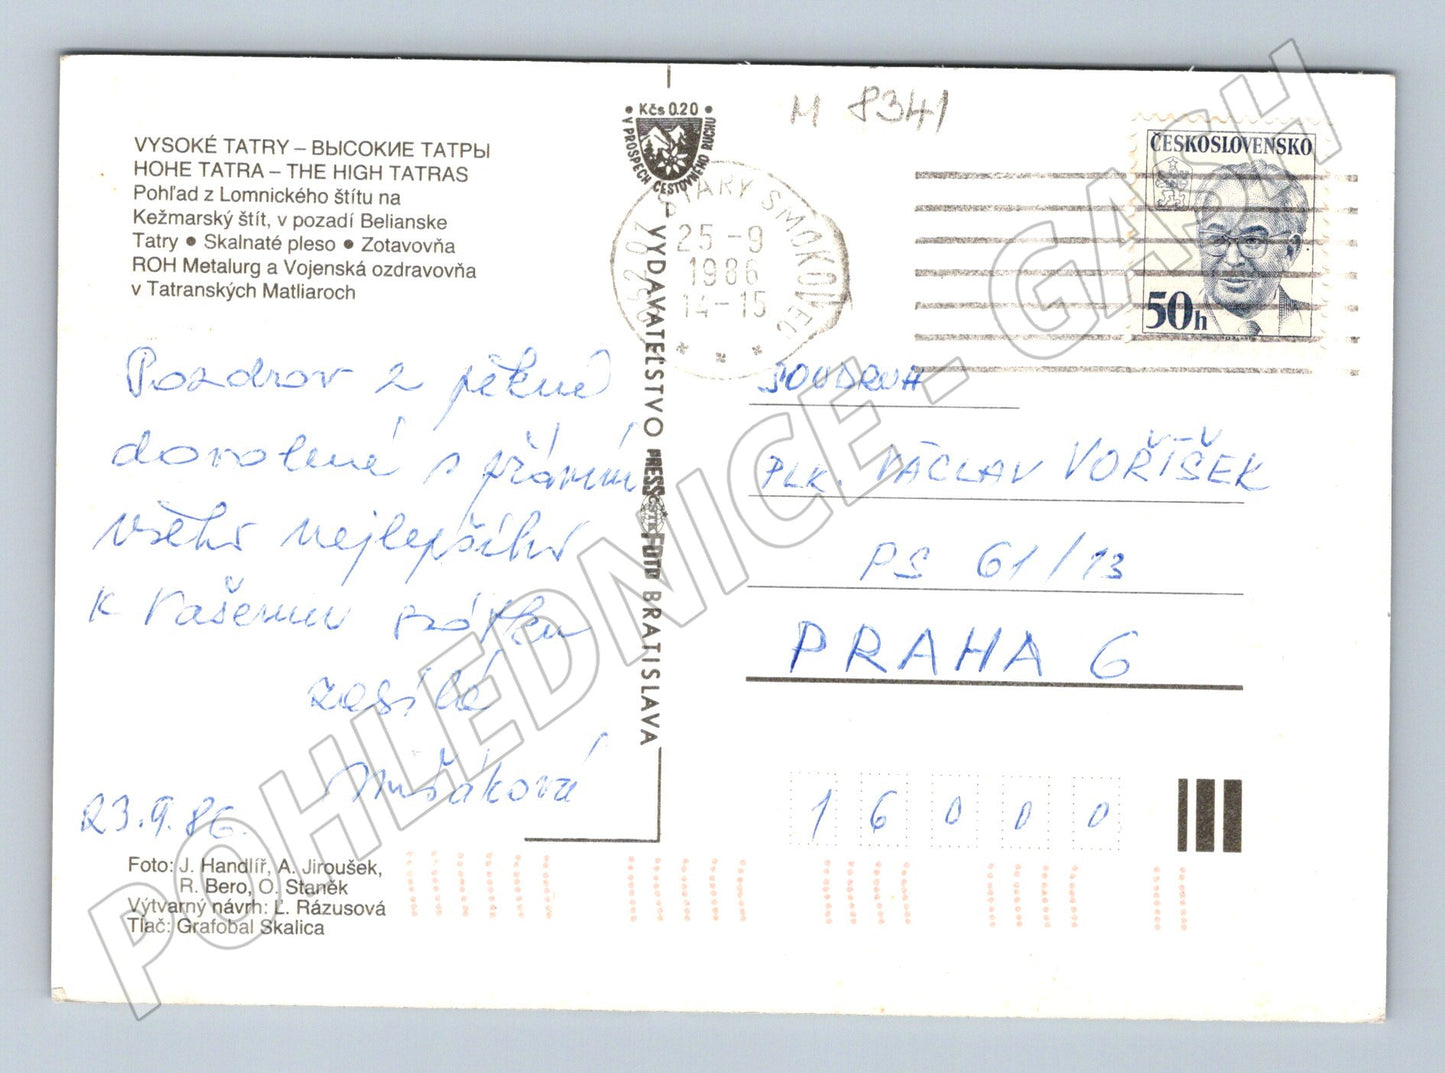 VYSOKÉ TATRY – ВЫСОКИЕ ТАТРЫ
HOHE TATRA – THE HIGH TATRAS
Pohľad z Lomnického štítu na
Kežmarský štít, v pozadí Belianske
Tatry • Skalnaté pleso • Zotavovňa
ROH Metalurg a Vojenská ozdravovňa
v Tatranských Matliaroch
Pozdrav z pěkné
dovolené s přáním
všeho nejlepšího
k Vašemu svátku
zasílá
23.9.86.
Foto: J. Handlíř, A. Jiroušek,
R. Bero, O. Staněk
Výtvarný návrh: Ľ. Rázusová
Tlač: Grafobal Skalica
Kčs 0.20
V PROSPECH CESTOVNÉHO RUCHU
VYDAVATEĽSTVO PRESSFOTO BRATISLAVA
M 8341
STARÝ SMOKOVEC
25 -9
1986
14-15
ČESKOSLOVENSKO
50h
SOUDRUH
PLK. VÁCLAV VOŘÍŠEK
PS 61/13
PRAHA 6
16000
POHLEDNICE - GASH